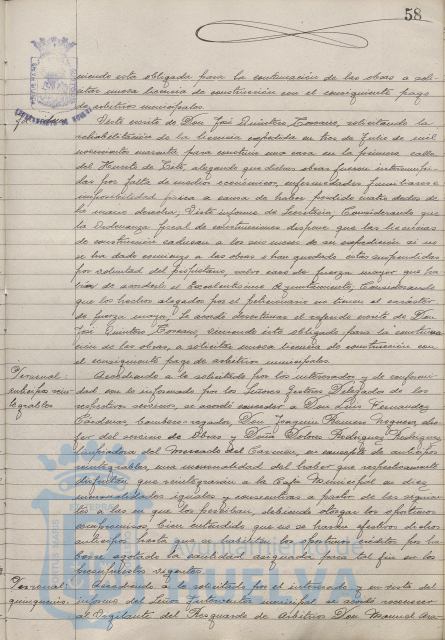 58
niendo esta obligada para la continuacion de las obras a soli-
citar nueva licencia de construcción con el consiguiente pago
de arbitrios municipales.
Visto escrito de Don José Quintero Cosano, solicitando la
rehabilitación de la licencia expedida en tres de Julio de mil
novecientos cuarenta para construir una casa en la primera calle
del Huerto de Cele, alegando que dichas obras fueron interrumpi-
das por falta de medios económicos, enfermedades familiares e
imposibilidad física a causa de haber perdido cuatro dedos de
la mano derecha, Visto informe de Secretaría, Considerando que
la Ordenanza fiscal de construcciones dispone que las licencias
de construcción caducan a los seis meses de su expedición si no
se ha dado comienzo a las obras o han quedado estas suspendidas
por voluntad del propietario, salvo caso de fuerza mayor que ha-
brá de acordarlo el Excelentísimo Ayuntamiento, Considerando
que los hechos alegados por el peticionario no tienen el carácter
de fuerza mayor, Se acordó desestimar el referido escrito de Don
José Quintero Cosano, viniendo éste obligado para la continua-
ción de las obras, a solicitar nueva licencia de construcción con
el consiguiente pago de arbitrios municipales.
Personal:
anticipos rein-
tegrables
Accediendo a lo solicitado por los interesados y de conformi-
dad con lo informado por los Señores Gestores Delegados de los
respectivos servicios, se acordó conceder a Don Luis Fernandez
Cárdenas, bombero regador, Don Joaquin Romero Nogueras, cho-
fer del servicio de Obras y Doña Dolores Rodriguez Rodriguez,
limpiadora del Mercado del Carmen, en concepto de anticipos
reintegrables, una mensualidad del haber que respectivamente
disfrutan que reintegrarán a la Caja Municipal en diez
mensualidades iguales y consecutivas a partir de las siguien-
tes a las en que los perciban, debiendo otorgar los oportunos
compromisos, bien entendido que no se harán efectivos dichos
anticipos hasta que se habiliten los oportunos créditos por ha-
berse agotado la cantidad asignada para tal fin en los
Presupuestos vigentes.
Personal:
quinquenios.
Accediendo a lo solicitado por el interesado y en vista del
informe del Señor Interventor municipal se acordó reconocer
al Vigilante del Resguardo de Arbitrios Don Manuel
HUELVA